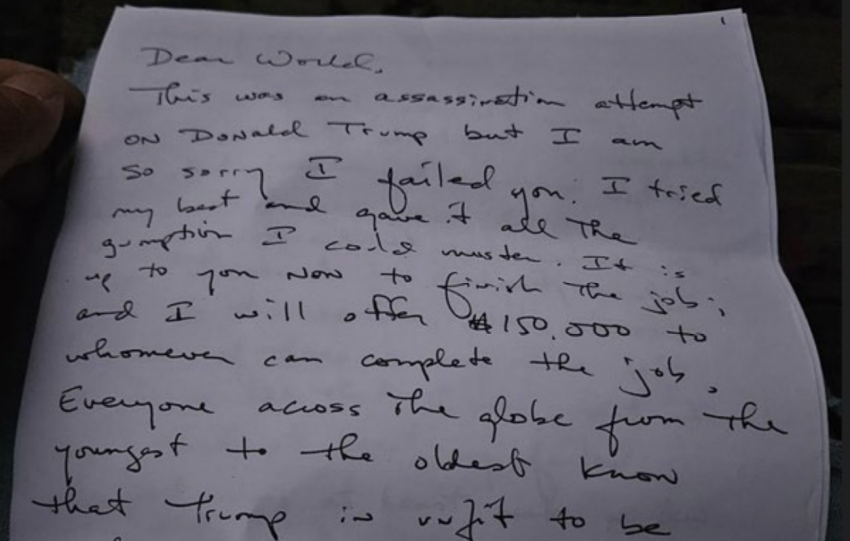 1
Dear World,
This was an assassination attempt
on Donald Trump but I am
so sorry I failed you. I tried
my best and gave it all the
gumption I could muster. It is
up to you now to finish the job;
and I will offer $150,000 to
whomever can complete the job.
Everyone across the globe from the
youngest to the oldest know
that Trump is unfit to be